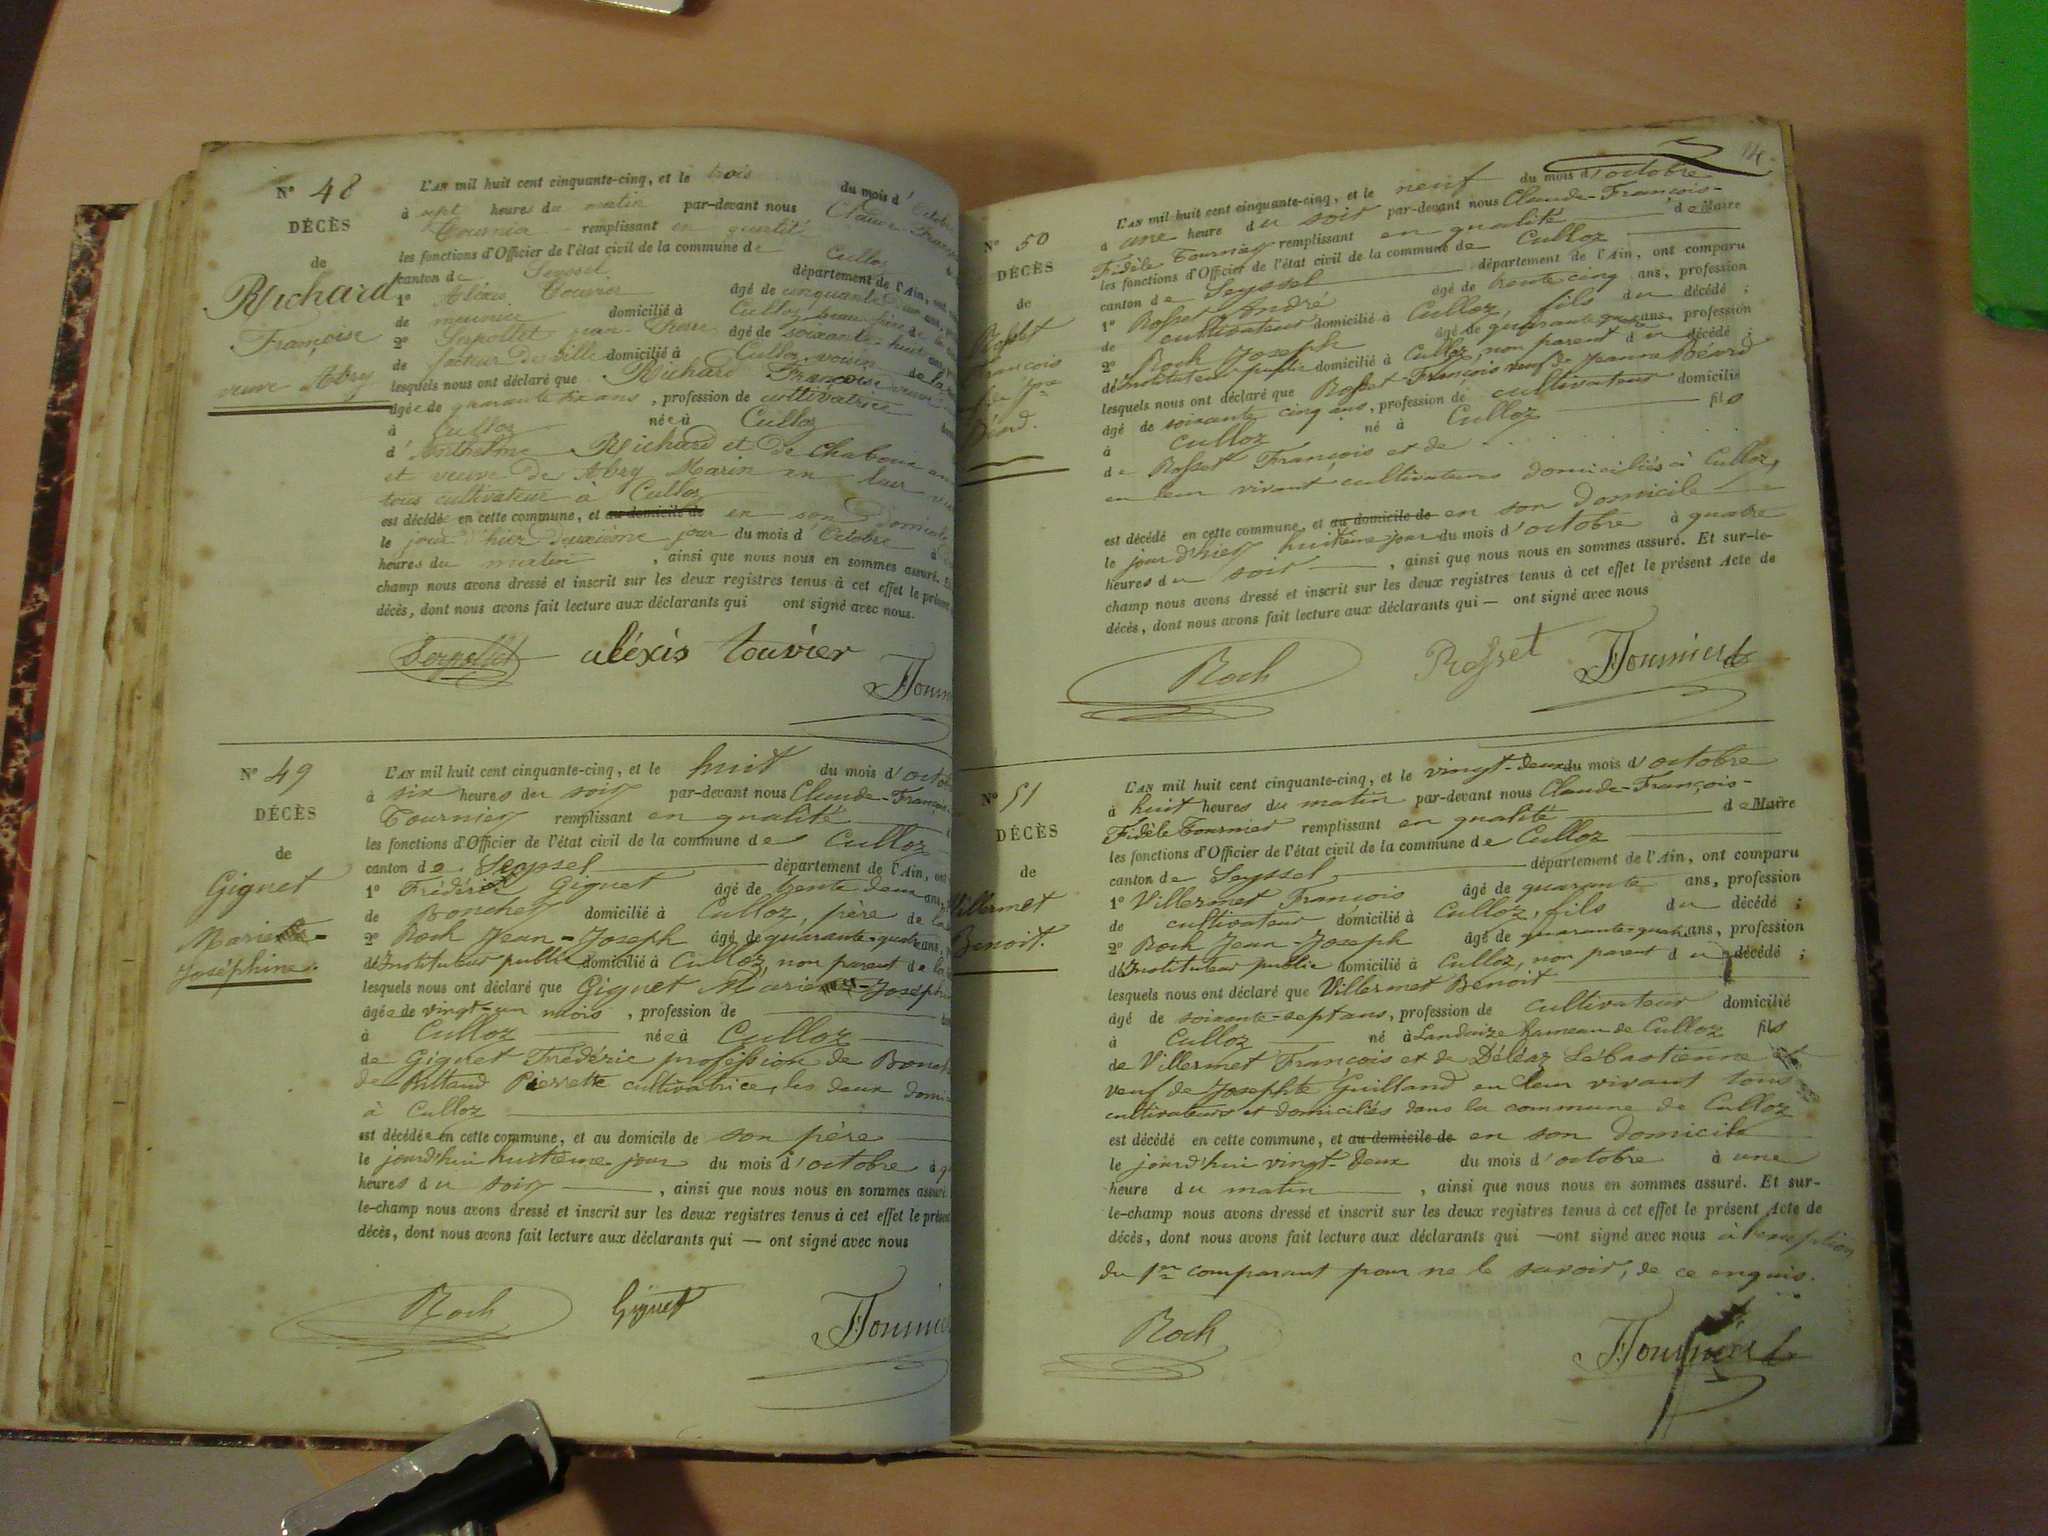 N° 48
DÉCÈS
de
Richard
Françoise
veuve Abry
L'AN mil huit cent cinquante-cinq, et le trois du mois d'Octobre
à sept heures du matin par-devant nous Claude-François
Tournier remplissant en qualité
les fonctions d'Officier de l'état civil de la commune de Culloz
canton de Seyssel département de l'Ain, ont
1° Alexis Touvier âgé de cinquante
de meunier domicilié à Culloz beau-père de la
2° Serpollet âgé de soixante-huit ans
de facteur de ville domicilié à Culloz, voisin de la
lesquels nous ont déclaré que Richard Françoise veuve
âgée de quarante ans, profession de cultivatrice
à Culloz née à Culloz
d'Anthelme Richard et de Chaboue
et veuve de Abry Marin en leur
tous cultivateur à Culloz
est décédée en cette commune, et au domicile de en son domicile
le jour d'hier deuxième jour du mois d'Octobre à
heures du matin, ainsi que nous nous en sommes assuré. Et
champ nous avons dressé et inscrit sur les deux registres tenus à cet effet le présent
décès, dont nous avons fait lecture aux déclarants qui ont signé avec nous.
Serpollet aléxis touvier
N° 49
DÉCÈS
de
Giguet
Marie-
Joséphine.
L'AN mil huit cent cinquante-cinq, et le huit du mois d'octobre
à six heures du soir par-devant nous Claude-François
Tournier remplissant en qualité
les fonctions d'Officier de l'état civil de la commune de Culloz
canton de Seyssel département de l'Ain, ont
1° Frédéric Giguet âgé de trente deux ans,
de Boucher domicilié à Culloz, père de la
2° Roch Jean-Joseph âgé de quarante-quatre ans,
d'Instituteur public domicilié à Culloz, non parent de la
lesquels nous ont déclaré que Giguet Marie-Joséphine
âgée de vingt-un mois, profession de
à Culloz née à Culloz
de Giguet Frédéric profession de Boucher
de Rittaud Pierrette cultivatrice, les deux
à Culloz
est décédée en cette commune, et au domicile de son père
le jourd'hui huitième jour du mois d'octobre à
heures du soir, ainsi que nous nous en sommes assuré.
le-champ nous avons dressé et inscrit sur les deux registres tenus à cet effet le présent
décès, dont nous avons fait lecture aux déclarants qui — ont signé avec nous
Roch Giguet
14.
N° 50
DÉCÈS
de
L'AN mil huit cent cinquante-cinq, et le neuf du mois d'octobre
à une heure du soir par-devant nous Claude-François-
Fidèle Tournier remplissant en qualité de Maire
les fonctions d'Officier de l'état civil de la commune de Culloz
canton de Seyssel département de l'Ain, ont comparu
1° Rosset André âgé de trente cinq ans, profession
de cultivateur domicilié à Culloz, fils du décédé;
2° Roch Joseph âgé de quarante quatre ans, profession
d'Instituteur public domicilié à Culloz, non parent du décédé;
lesquels nous ont déclaré que Rosset François veuf de Jeanne Béard
âgé de soixante cinq ans, profession de cultivateur domicilié
à Culloz né à Culloz fils
de Rosset François et de . . . . . .
en leur vivant cultivateurs domiciliés à Culloz,
est décédé en cette commune, et au domicile de en son domicile
le jour d'hier huitième jour du mois d'octobre à quatre
heures du soir, ainsi que nous nous en sommes assuré. Et sur-le-
champ nous avons dressé et inscrit sur les deux registres tenus à cet effet le présent Acte de
décès, dont nous avons fait lecture aux déclarants qui — ont signé avec nous
Roch Rosset Tournier
N° 51
DÉCÈS
de
Villermet
Benoit.
L'AN mil huit cent cinquante-cinq, et le vingt-deux du mois d'octobre
à huit heures du matin par-devant nous Claude-François-
Fidèle Tournier remplissant en qualité de Maire
les fonctions d'Officier de l'état civil de la commune de Culloz
canton de Seyssel département de l'Ain, ont comparu
1° Villermet François âgé de quarante ans, profession
de cultivateur domicilié à Culloz, fils du décédé;
2° Roch Jean-Joseph âgé de quarante-quatre ans, profession
d'Instituteur public domicilié à Culloz, non parent du décédé;
lesquels nous ont déclaré que Villermet Benoit
âgé de soixante-sept ans, profession de cultivateur domicilié
à Culloz né à Landaize hameau de Culloz fils
de Villermet François et de Déléaz Sébastienne et
veuf de Josephte Guilland en leur vivant tous
cultivateurs et domiciliés dans la commune de Culloz
est décédé en cette commune, et au domicile de en son domicile
le jourd'hui vingt-deux du mois d'octobre à une
heure du matin, ainsi que nous nous en sommes assuré. Et sur-
le-champ nous avons dressé et inscrit sur les deux registres tenus à cet effet le présent Acte de
décès, dont nous avons fait lecture aux déclarants qui — ont signé avec nous à l'exception
du 1er comparant pour ne le savoir, de ce enquis.
Roch Tournier